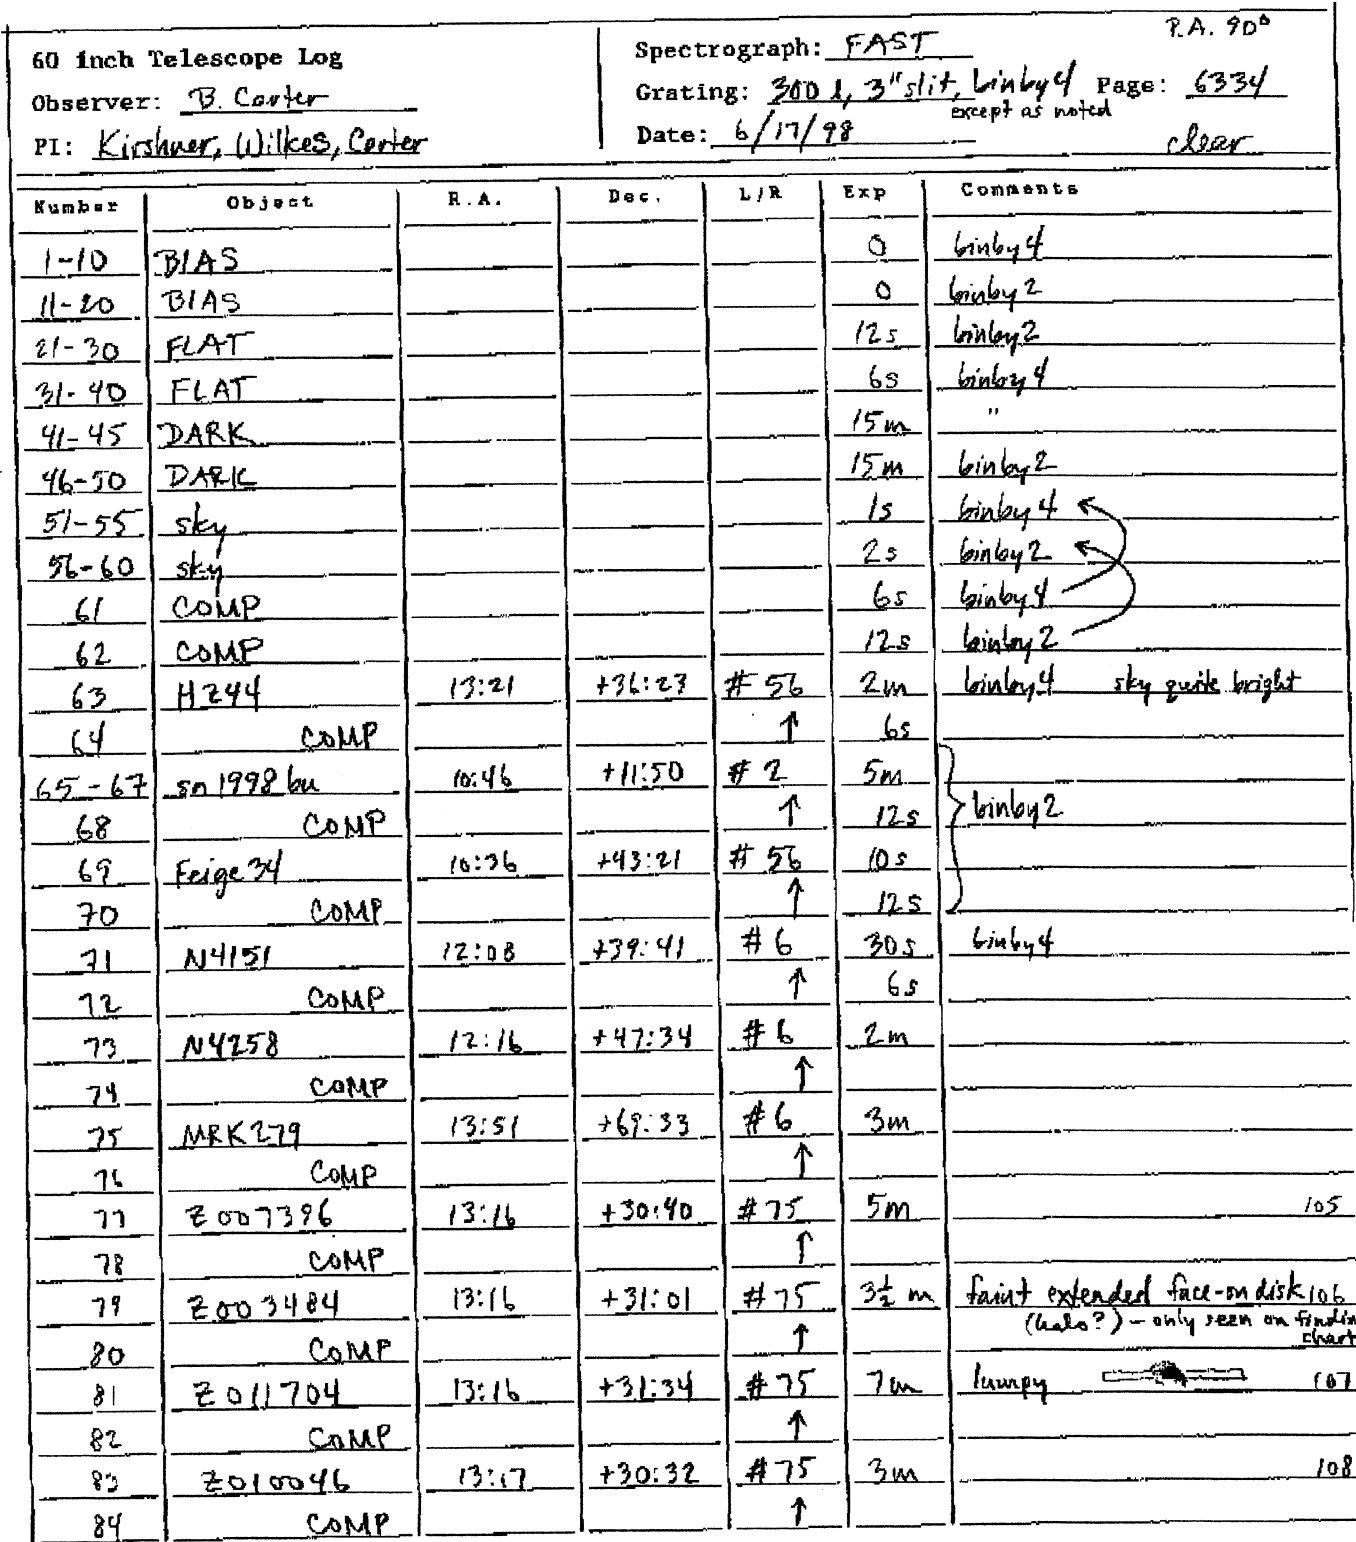 P.A. 90°
60 inch Telescope Log
Spectrograph: FAST
Observer: B. Carter
Grating: 300 l, 3" slit, binby4 Page: 6334
except as noted
PI: Kirshner, Wilkes, Carter
Date: 6/17/98 clear
Number Object R.A. Dec. L/R Exp Comments
1-10 BIAS 0 binby4
11-20 BIAS 0 binby2
21-30 FLAT 12s binby2
31-40 FLAT 6s binby4
41-45 DARK 15m "
46-50 DARK 15m binby2
51-55 sky 1s binby4
56-60 sky 2s binby2
61 COMP 6s binby4
62 COMP 12s binby2
63 HZ44 13:21 +36:23 #56 2m binby4 sky quite bright
64 COMP ↑ 6s
65-67 sn1998bu 10:46 +11:50 #2 5m
68 COMP ↑ 12s binby2
69 Feige34 10:36 +43:21 #56 10s
70 COMP ↑ 12s
71 N4151 12:08 +39:41 #6 30s binby4
72 COMP ↑ 6s
73 N4258 12:16 +47:34 #6 2m
74 COMP ↑
75 MRK279 13:51 +69:33 #6 3m
76 COMP ↑
77 Z007396 13:16 +30:40 #75 5m 105
78 COMP ↑
79 Z003484 13:16 +31:01 #75 3½ m faint extended face-on disk 106
(halo?) - only seen on findin
chart
80 COMP ↑
81 Z011704 13:16 +31:34 #75 7m lumpy 107
82 COMP ↑
83 Z010046 13:17 +30:32 #75 3m 108
84 COMP ↑